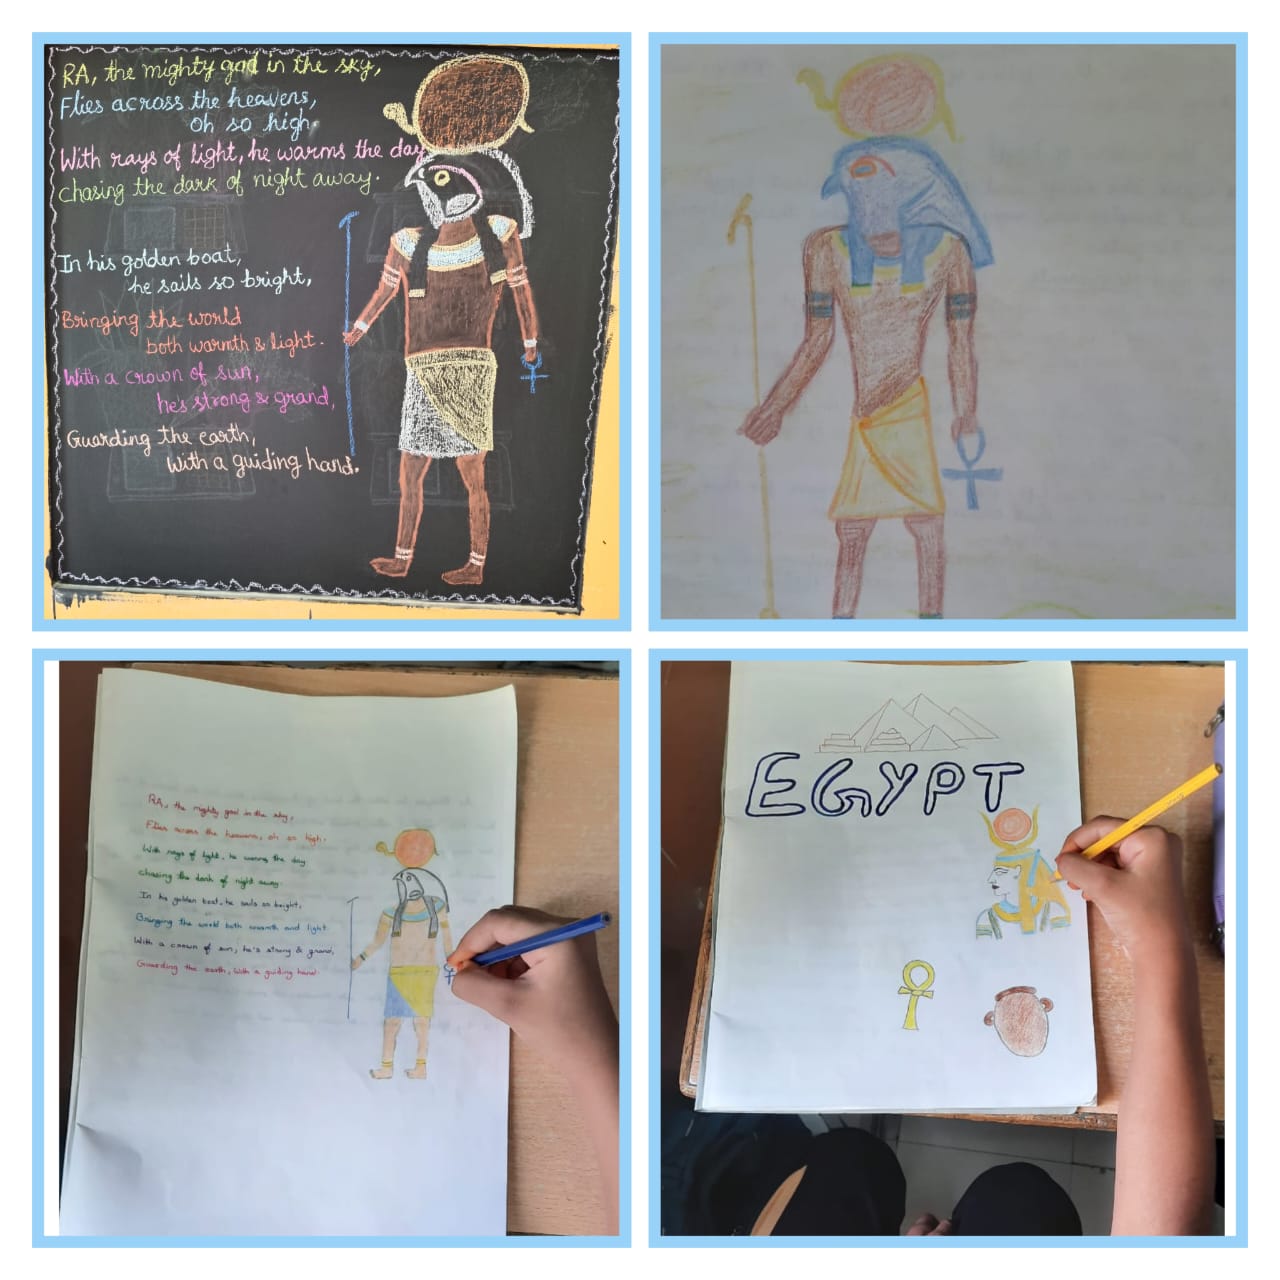 RA, the mighty god in the sky,
Flies across the heavens,
oh so high.
With rays of light, he warms the day
chasing the dark of night away.
In his golden boat,
he sails so bright,
Bringing the world
both warmth & light.
With a crown of sun,
hes strong & grand,
Guarding the earth,
with a guiding hand.
RA, the mighty god in the sky,
Flies across the heavens, oh so high.
With rays of light, he warms the day
chasing the dark of night away.
In his golden boat, he sails so bright,
Bringing the world both warmth and light
With a crown of sun, he's strong & grand,
Guarding the earth, with a guiding hand
EGYPT